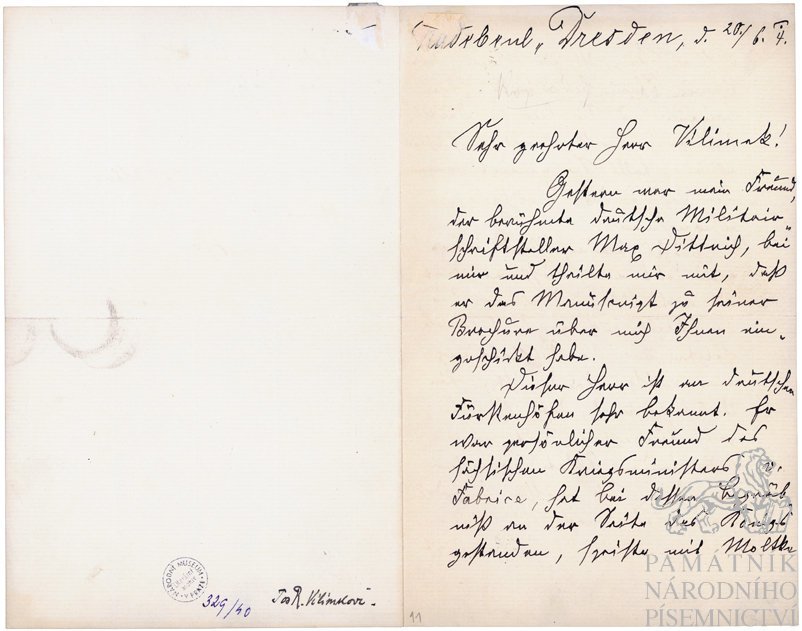 329/40
Jos R. Vilímkovi.
NÁRODNÍ MUSEUM
V PRAZE
Radebeul, Dresden, d. 20./6. 4.
Sehr geehrter Herr Vilimek!
Gestern war mein Freund,
der berühmte deutsche Militair-
schriftsteller Max Dittrich, bei
mir und theilte mir mit, daß
er das Manuscript zu seiner
Brochure über mich Ihnen ein-
geschickt habe.
Dieser Herr ist an deutschen
Fürstenhöfen sehr bekannt. Er
war persönlicher Freund des
sächsischen Kriegsministers v.
Fabrice, hat bei dessen Begräb
niß an der Seite des Königs
gestanden, speiste mit Moltke
11
PAMÁTNÍK
NÁRODNÍHO
PÍSEMNICTVÍ